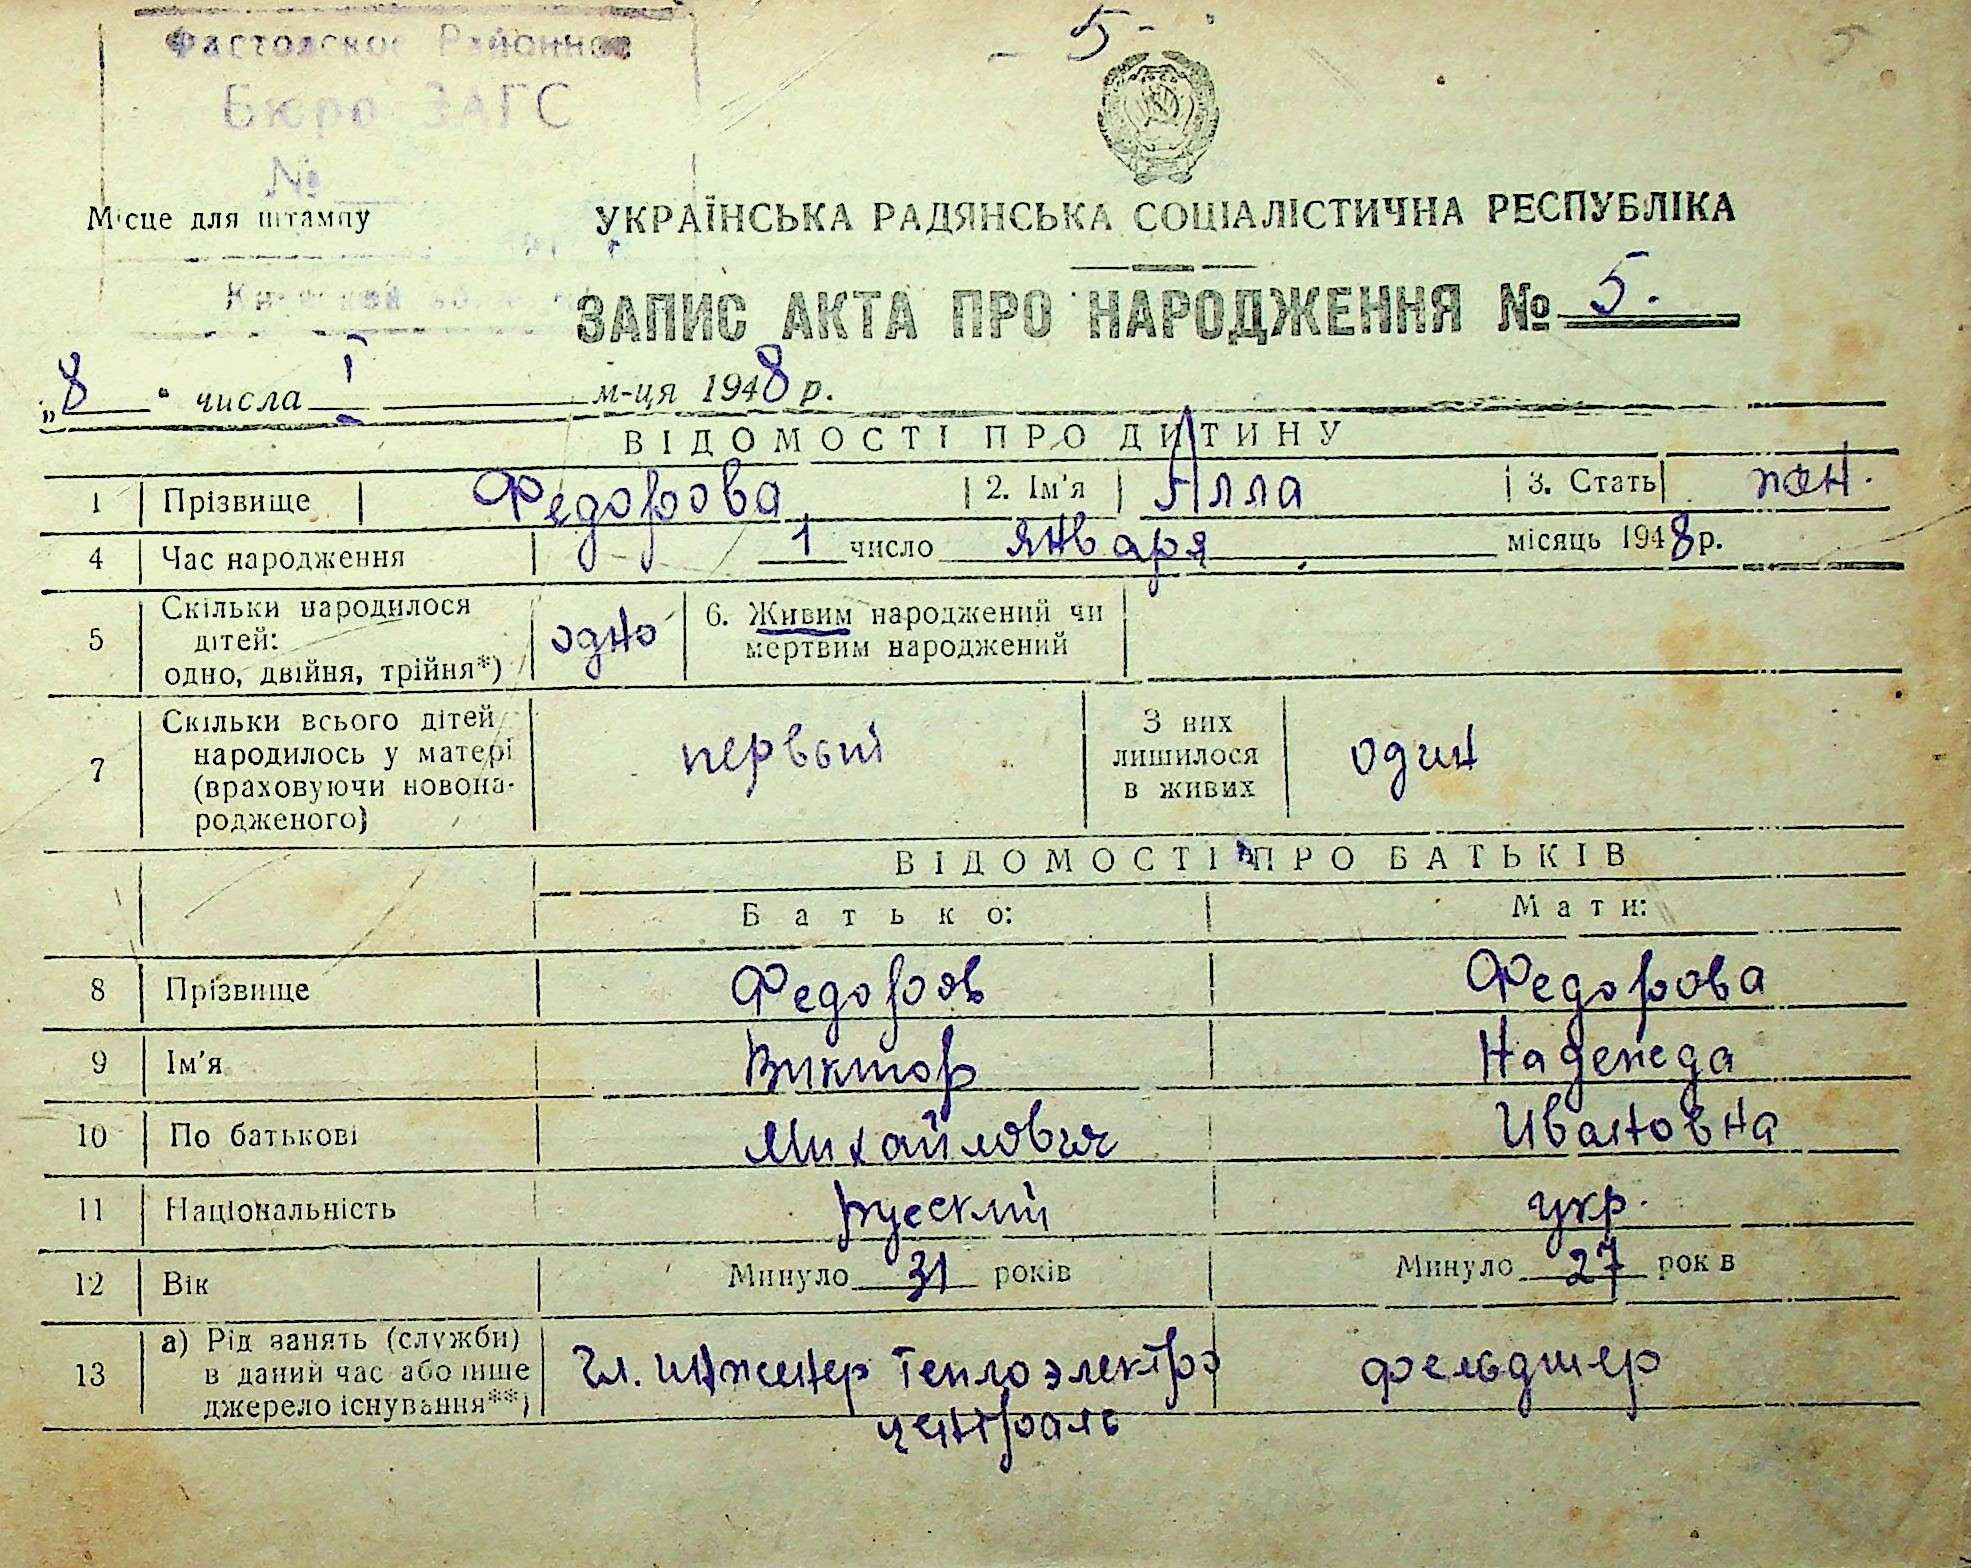 - 5 -
Фастовское Районное
Бюро ЗАГС
№
Місце для штампу
УКРАЇНСЬКА РАДЯНСЬКА СОЦІАЛІСТИЧНА РЕСПУБЛІКА
ЗАПИС АКТА ПРО НАРОДЖЕННЯ № 5.
„8" числа I м-ця 1948 р.
ВІДОМОСТІ ПРО ДИТИНУ
1 Прізвище Федорова 2. Ім'я Алла 3. Стать жен.
4 Час народження 1 число января місяць 1948 р.
5 Скільки народилося дітей: одно, двійня, трійня*) одно 6. Живим народжений чи мертвим народжений
7 Скільки всього дітей народилось у матері (враховуючи новона-родженого) первый З них лишилося в живих один
ВІДОМОСТІ ПРО БАТЬКІВ
Батько: Мати:
8 Прізвище Федоров Федорова
9 Ім'я Виктор Надежда
10 По батькові Михайлович Ивановна
11 Національність русский укр.
12 Вік Минуло 31 років Минуло 27 рок в
13 а) Рід занять (служби) в даний час або інше джерело існування**) Гл. инженер Теплоэлектро централь фельдшер